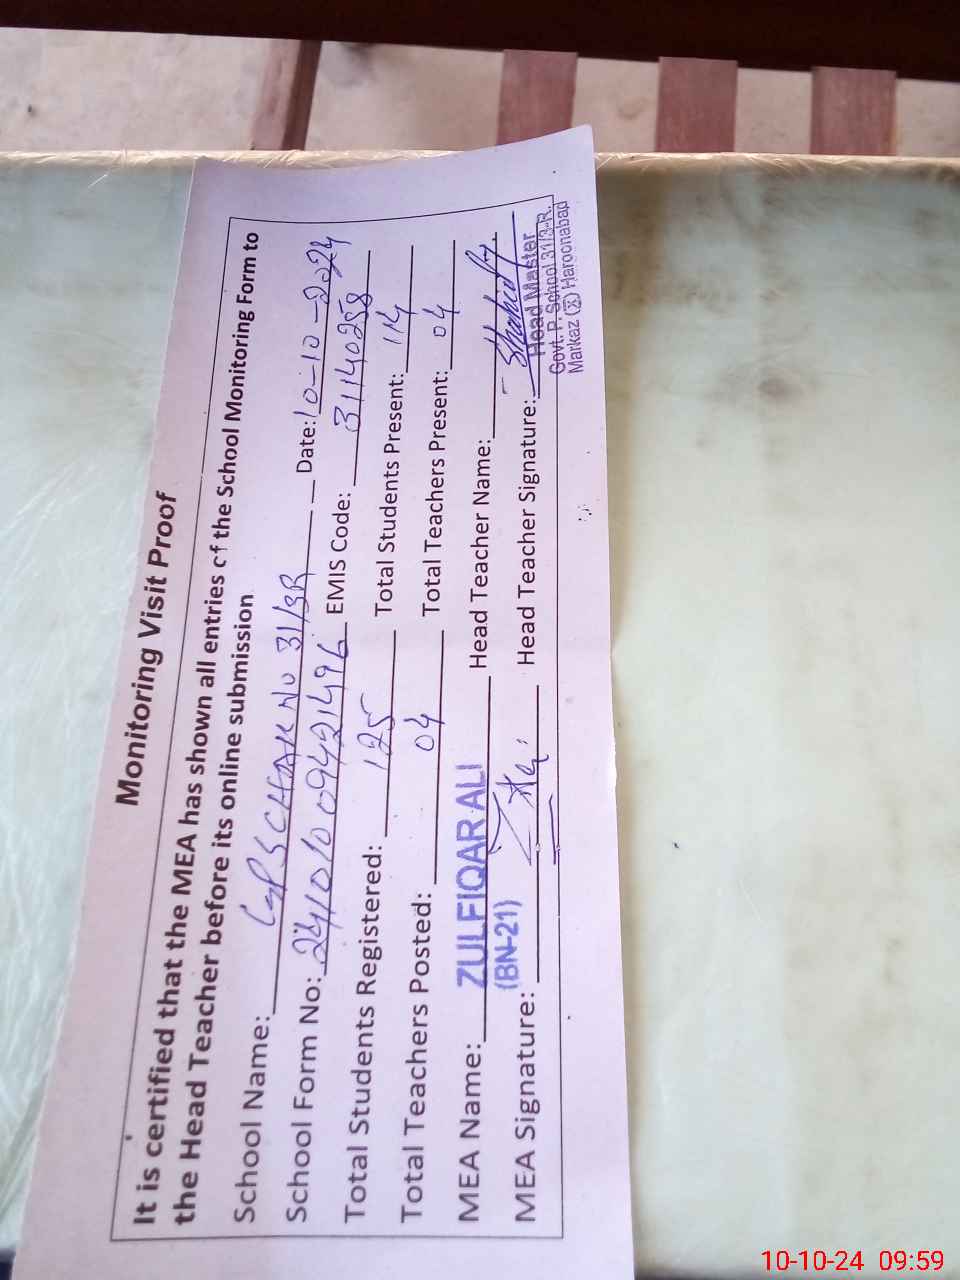 Monitoring Visit Proof
It is certified that the MEA has shown all entries of the School Monitoring Form to
the Head Teacher before its online submission
School Name: GPS CHAK NO 31/3R Date: 10-10-2024
School Form No: 24101009421496 EMIS Code: 31140258
Total Students Registered: 125 Total Students Present: 114
Total Teachers Posted: 04 Total Teachers Present: 04
MEA Name: ZULFIQAR ALI Head Teacher Name:
(BN-21)
MEA Signature: Head Teacher Signature:
Head Master
Govt. P. School 31/3-R.
Markaz (X) Haroonabad
10-10-24 09:59